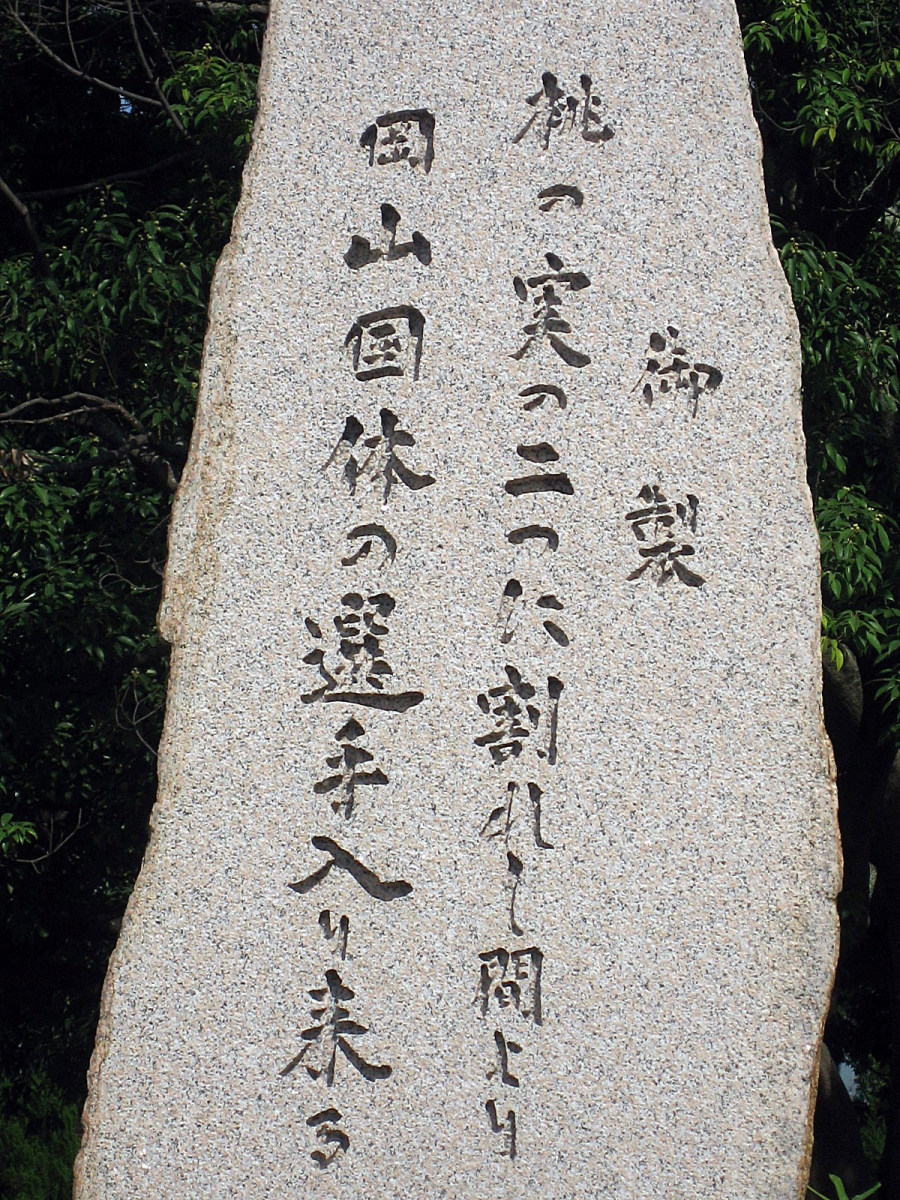 御製
桃の実の二つに割れし間より
岡山国体の選手入り来る